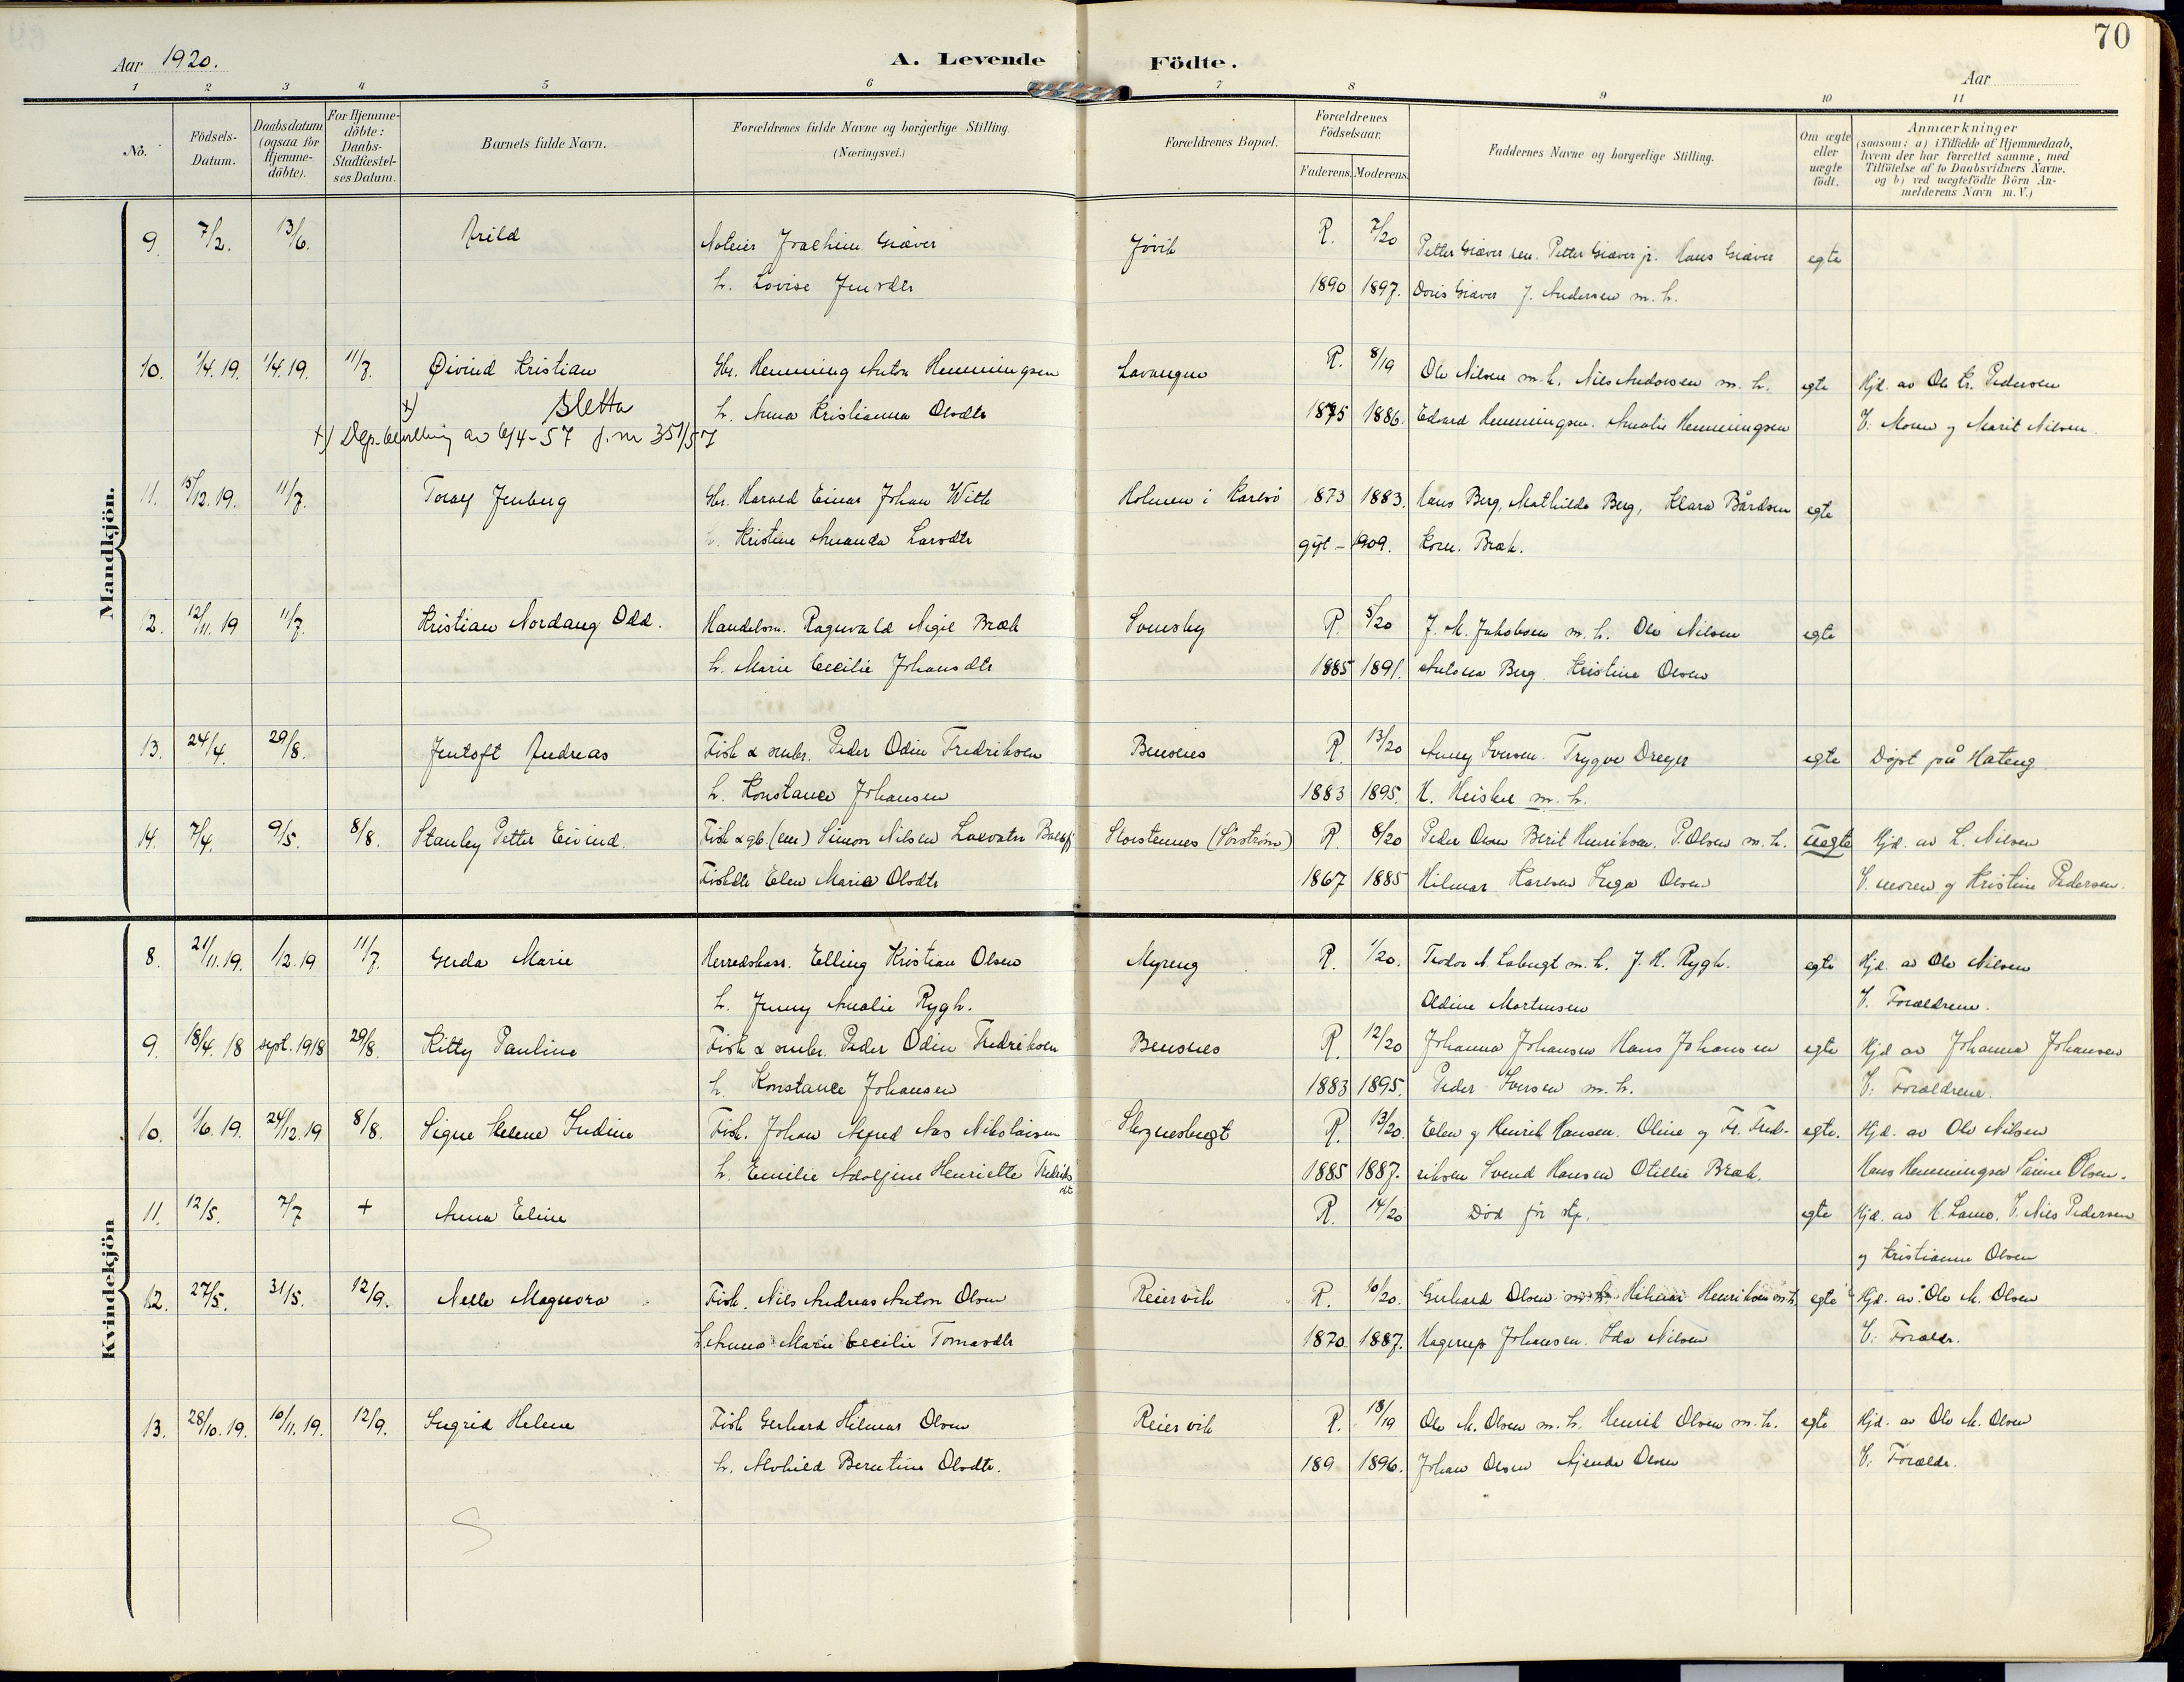 70
Aar 1920.
A. Levende Födte.
Aar
1 2 3 4 5 6 7 8 9 10 11
No.
Födsels-Datum.
Daabsdatum (ogsaa for Hjemme-döbte).
For Hjemme-döbte: Daabs-Stadfæstel-ses Datum.
Barnets fulde Navn.
Forældrenes fulde Navne og borgerlige Stilling.
(Næringsvei.)
Forældrenes Bopæl.
Forældrenes Födselsaar.
Faderens. Moderens.
Faddernes Navne og borgerlige Stilling.
Om ægte eller uægte födt.
Anmærkninger
(saasom: a) i Tilfælde af Hjemmedaab, hvem der har forrettet samme, med Tilföielse af to Daabsvidners Navne. og b) ved uægtefödte Börn An-melderens Navn m. V.)
Mandkjön.
9. 7/2. 13/6. Arild Joachim Giæver Jøvik R. 7/20 Petter Giæver sen. Petter Giæver jr. Hans Giæver egte
h. Lovise 1890 1897. Doris Giæver J. Andersen m. h.
10. 1/4.19. 1/4.19. 11/7. Øivind Kristian Gbr. Henning Anton Henningsen Lavangen R. 8/19 Ole Nilsen m. h. Nils Andersen m. h. egte Hjd. av Ole Kr. Pedersen
x) Sletta h. Anna Kristianna Olsdtr 1875 1886. Edvard Henningsen. Amalie Henningsen V. Moren og Marit Nilsen.
x) Dep. bevilling av 6/4-57 j. nr 351/57
11. 15/12.19. 11/7. Toralf Jenberg Gbr. Harald Einar Johan With Holmen i Karlsö 873 1883. Hans Berg, Mathilde Berg, Klara Bårdsen egte
h. Kristine Amanda Larsdtr gift – 1909. Korn. Bræk.
12. 12/11.19 11/7. Kristian Nordang Odd. Handelsm. Ragnvald Bræk Svensby R. 5/20 J. M. Jakobsen m. h. Ole Nilsen egte
h. Marie Cecilie Johansdtr 1885 1891. Berg. Kristine Olsen
13. 24/4. 29/8. Jentoft Andreas Fisk & smbr. Peder Odin Fredriksen Bensnes R. 13/20 Anny Iversen. Trygve Dreyer egte Døpt på Hateng
h. Konstance Johansen 1883 1895. H. Heiskel m. h.
14. 7/4. 9/5. 8/8. Stanley Petter Eivind. Fisk & gb. (em) Simon Nilsen Laxvatn Balsfj Storstennes (Sørstrøm) R. 8/20 Peder Olsen Berit Henriksen. P. Olsen m. h. Uegte Hjd. av L. Nilsen
Fiskdtr Elen Maria Olsdtr 1867 1885 Hilmar Karlsen Inga Olsen V. moren og Kristine Pedersen.
Kvindekjön
8. 21/11.19. 1/2.19 11/7. Gerda Marie Herredskass. Elling Kristian Olsen Myreng R. 1/20. Teodor N. Labugt m. h. J. H. Rygh. egte Hjd. av Ole Nilsen
h. Jenny Amalie Rygh. Oldine Mortensen V. Forældrene.
9. 18/4.18 sept. 1918 29/8. Kitty Pauline Fisk & smbr. Peder Odin Fredriksen Bensnes R. 12/20 Johanna Johansen Hans Johansen egte Hjd av Johanna Johansen
h. Konstance Johansen 1883 1895. Peder Iversen m. h. V: Forældrene.
10. 1/6.19. 24/12.19 8/8. Signe Helene Indine Fisk. Johan Alfred Aas Nikolaisen Skognesbugt R. 13/20. Elen og Henrik Hansen. Oline og Fr. Fred- egte. Hjd. av Ole Nilsen
h. Emilie Adolfine Henriette Fredriksdt 1885 1887. riksen Svend Hansen Otillie Bræk. Hans Henningsen Olsen.
11. 12/5. 7/7 + Anna Eline R. 14/20 Død før stf. egte Hjd. av H. V. Nils Pedersen
og Kristianne Olsen
12. 27/5. 31/5. 12/9. Nelle Magnora Fisk. Nils Andreas Anton Olsen Reiervik R. 10/20. Gerhard Olsen m. h. Hilmar Henriksen m. h. egte Hjd. av Ole M. Olsen
h. Anna Marie Cecilie Tomasdtr 1870 1887. Hagerup Johansen. Ida Nilsen V: Forældr.
13. 28/10.19. 10/11.19. 12/9. Sugrid Helene Fisk Gerhard Hilmar Olsen Reiervik R. 18/19 Ole M. Olsen m. h. Henrik Olsen m. h. egte Hjd. av Ole M. Olsen
h. Alvhild Berntine Olsdtr. 189 1896. Johan Olsen Ajenda Olsen V: Forældr.